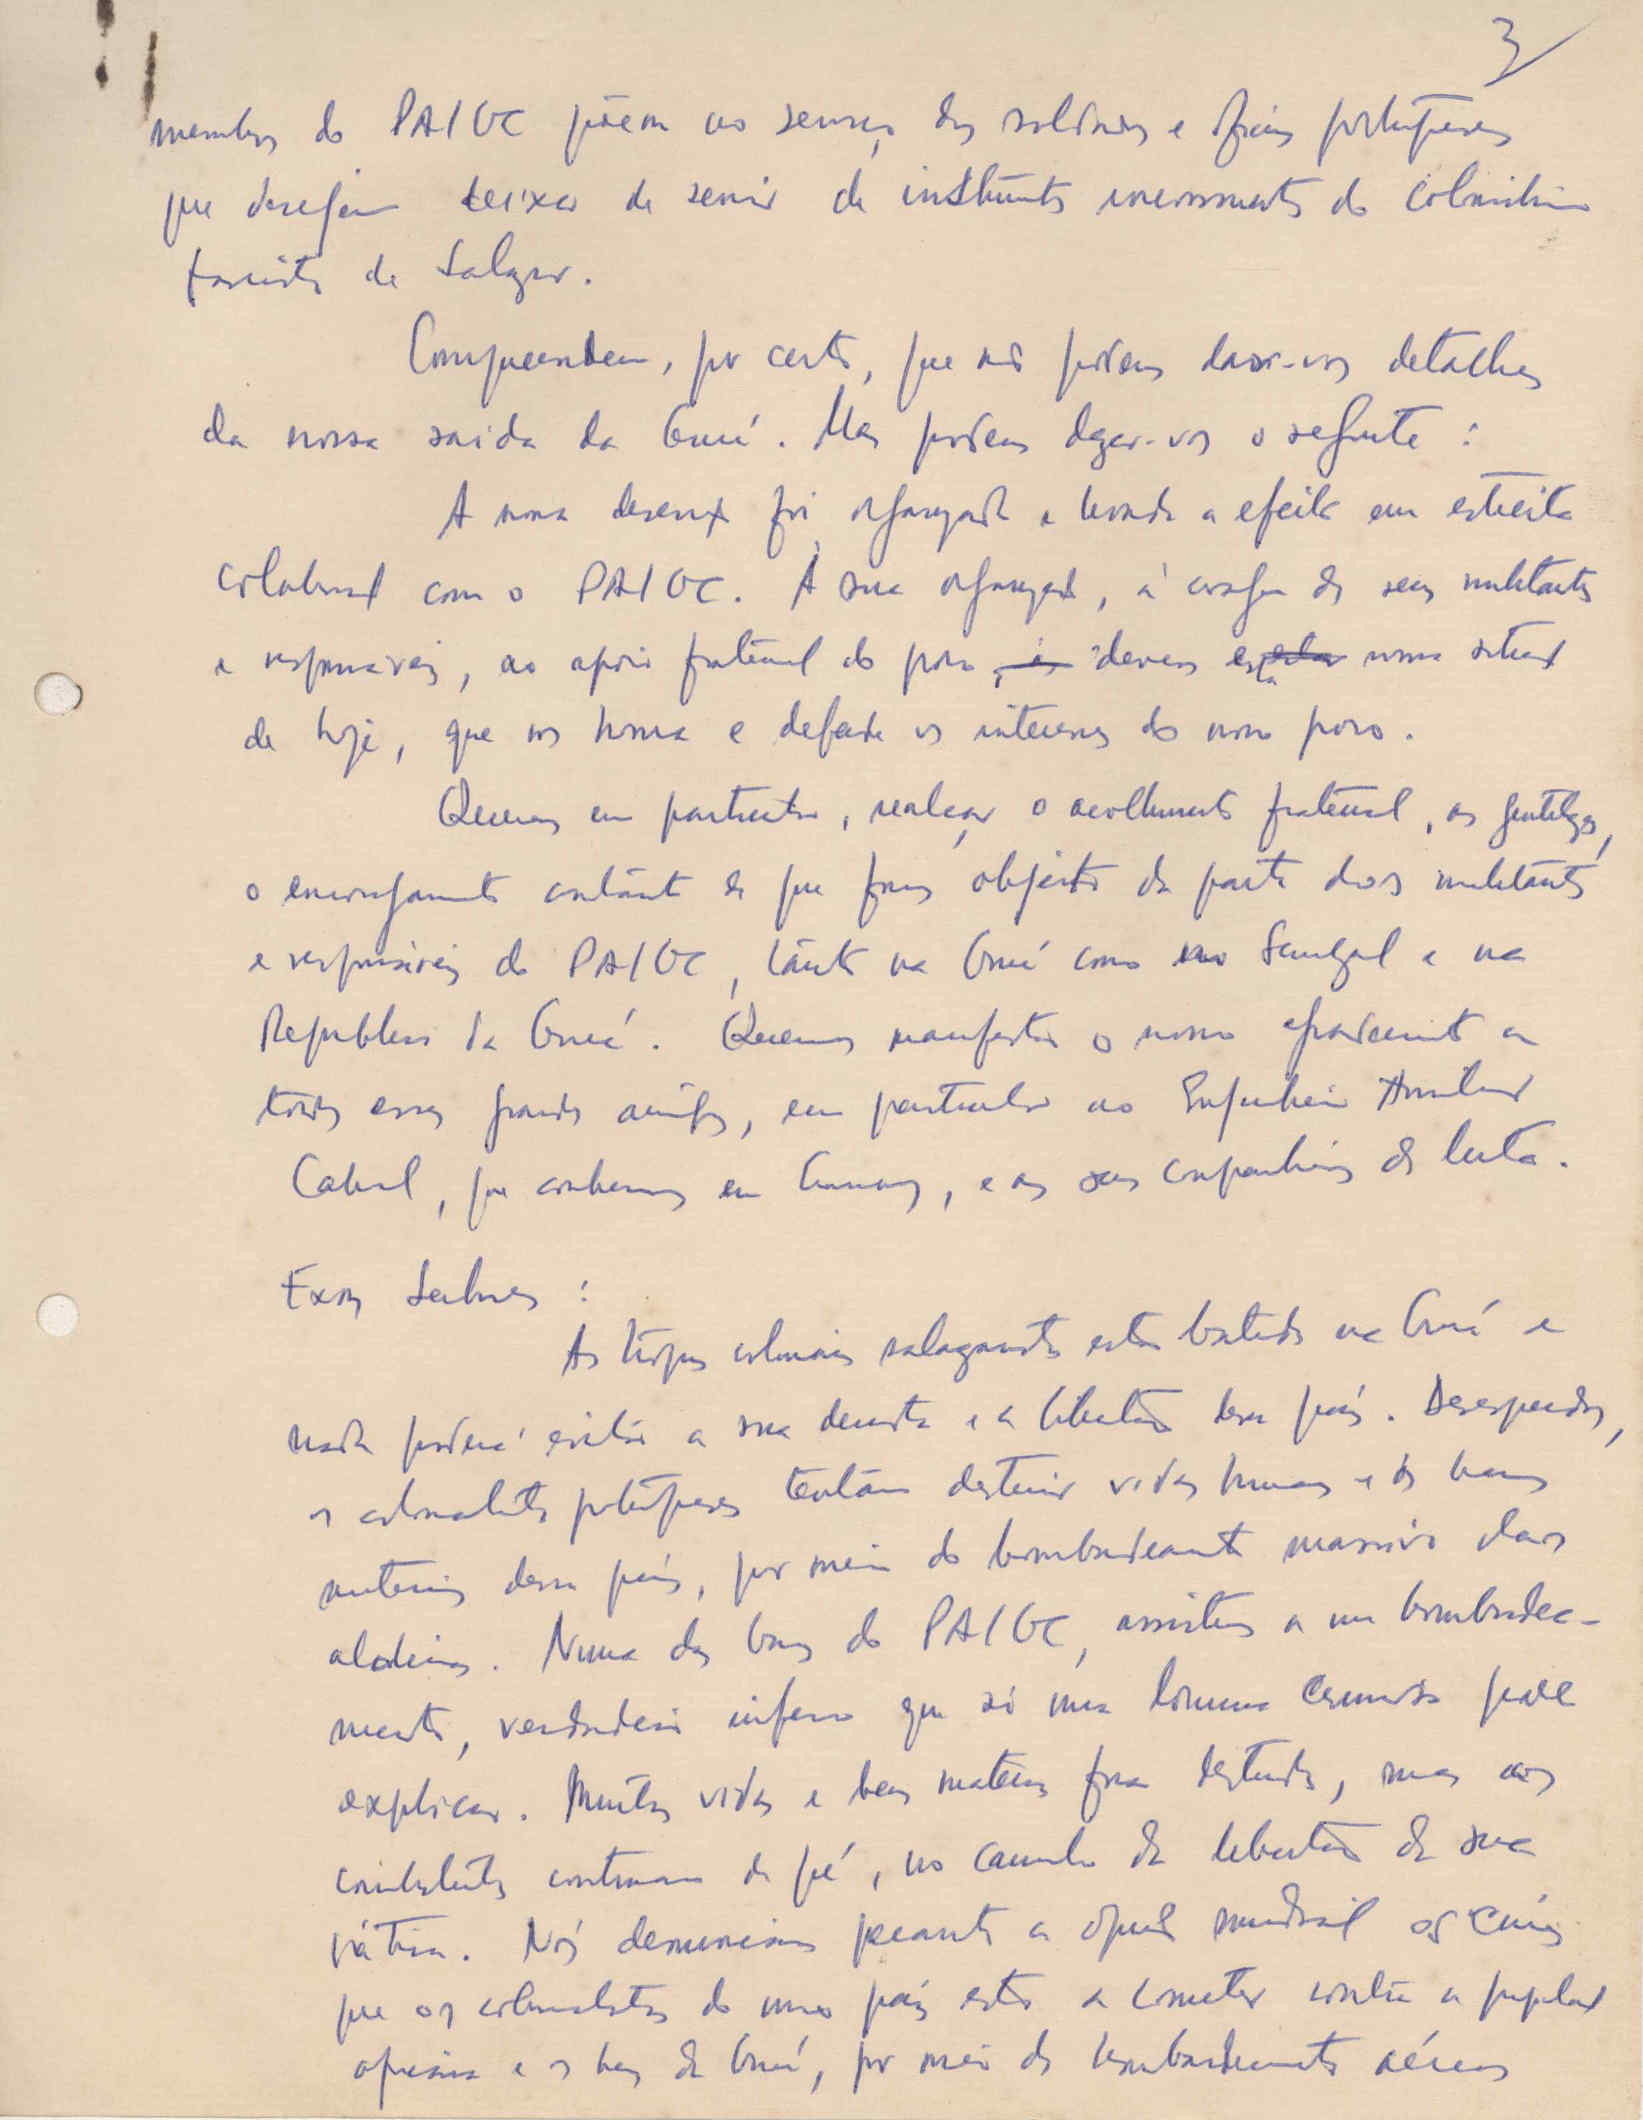 3
membros do PAIGC põem ao serviço dos soldados e oficiais portugueses
que desejem deixar de servir de instrumentos inconscientes do colonialismo
fascista de Salazar.
Compreendem, por certo, que não podemos dar-vos detalhes
da nossa saída da Guiné. Mas podemos dizer-vos o seguinte :
A nossa deserção foi organizada e levada a efeito em estreita
colaboração com o PAIGC. À sua organização, à coragem dos seus militantes
e responsáveis, ao apoio fraternal do povo, devemos esta nossa situação
de hoje, que nos honra e defende os interesses do nosso povo.
Queremos em particular, realçar o acolhimento fraternal, as gentilezas,
o encorajamento constante de que fomos objecto da parte dos militantes
e responsáveis do PAIGC, tanto na Guiné como no Senegal e na
Republica da Guiné. Queremos manifestar o nosso agradecimento a
todos esses grandes amigos, em particular ao Engenheiro Amilcar
Cabral, que conhecemos em Conacry, e aos seus companheiros de luta.
Exmos Senhores :
As tropas coloniais salazaristas estão batidas na Guiné e
nada poderá evitar a sua derrota e a libertação desse país. Desesperados,
os colonialistas portugueses tentam destruir vidas humanas e os bens
materiais desse país, por meio do bombardeamento massivo das
aldeias. Numa das bases do PAIGC, assistimos a um bombardea-
mento, verdadeiro inferno que só uma loucura criminosa pode
explicar. Muitas vidas e bens materiais foram destruidos, mas os
combatentes continuam de pé, no caminho da libertação da sua
pátria. Nós denunciamos perante a opinião mundial os crimes
que os colonialistas do nosso país estão a cometer contra a população
africana e os bens da Guiné, por meio de bombardeamentos aéreos